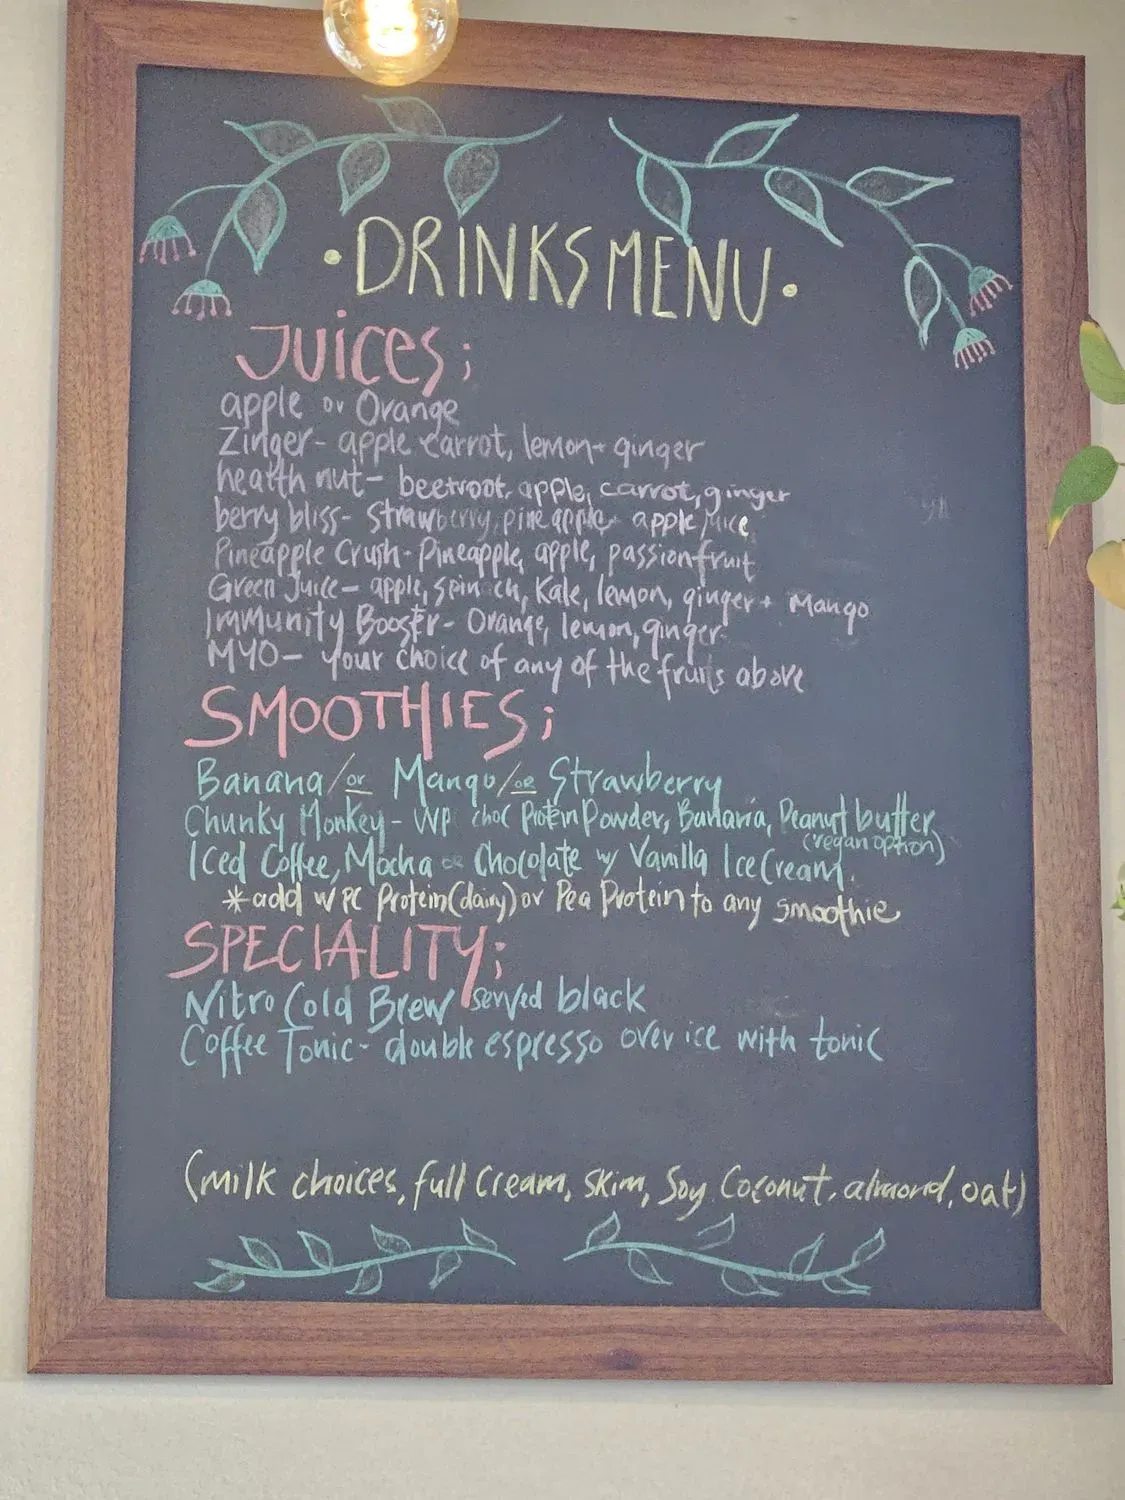 • DRINKS MENU •
JUICES;
apple or Orange
Zinger- apple carrot, lemon+ ginger
health nut- beetroot, apple, carrot, ginger
berry bliss- Strawberry, pineapple apple juice
Pineapple Crush- Pineapple, apple, passionfruit
Green Juice- apple, spinach, Kale, lemon, ginger + Mango
Immunity Booster- Orange, lemon, ginger
MYO- your choice of any of the fruits above
SMOOTHIES;
Banana/or Mango/or Strawberry
Chunky Monkey- WP choc Protein Powder, Banana, Peanut butter
(vegan option)
Iced Coffee, Mocha or Chocolate w/ Vanilla Ice Cream.
*add WPC Protein(dairy) or Pea Protein to any smoothie
SPECIALITY;
Nitro Cold Brew served black
Coffee Tonic- double espresso over ice with tonic
(milk choices, full Cream, Skim, Soy, Coconut, almond, oat)